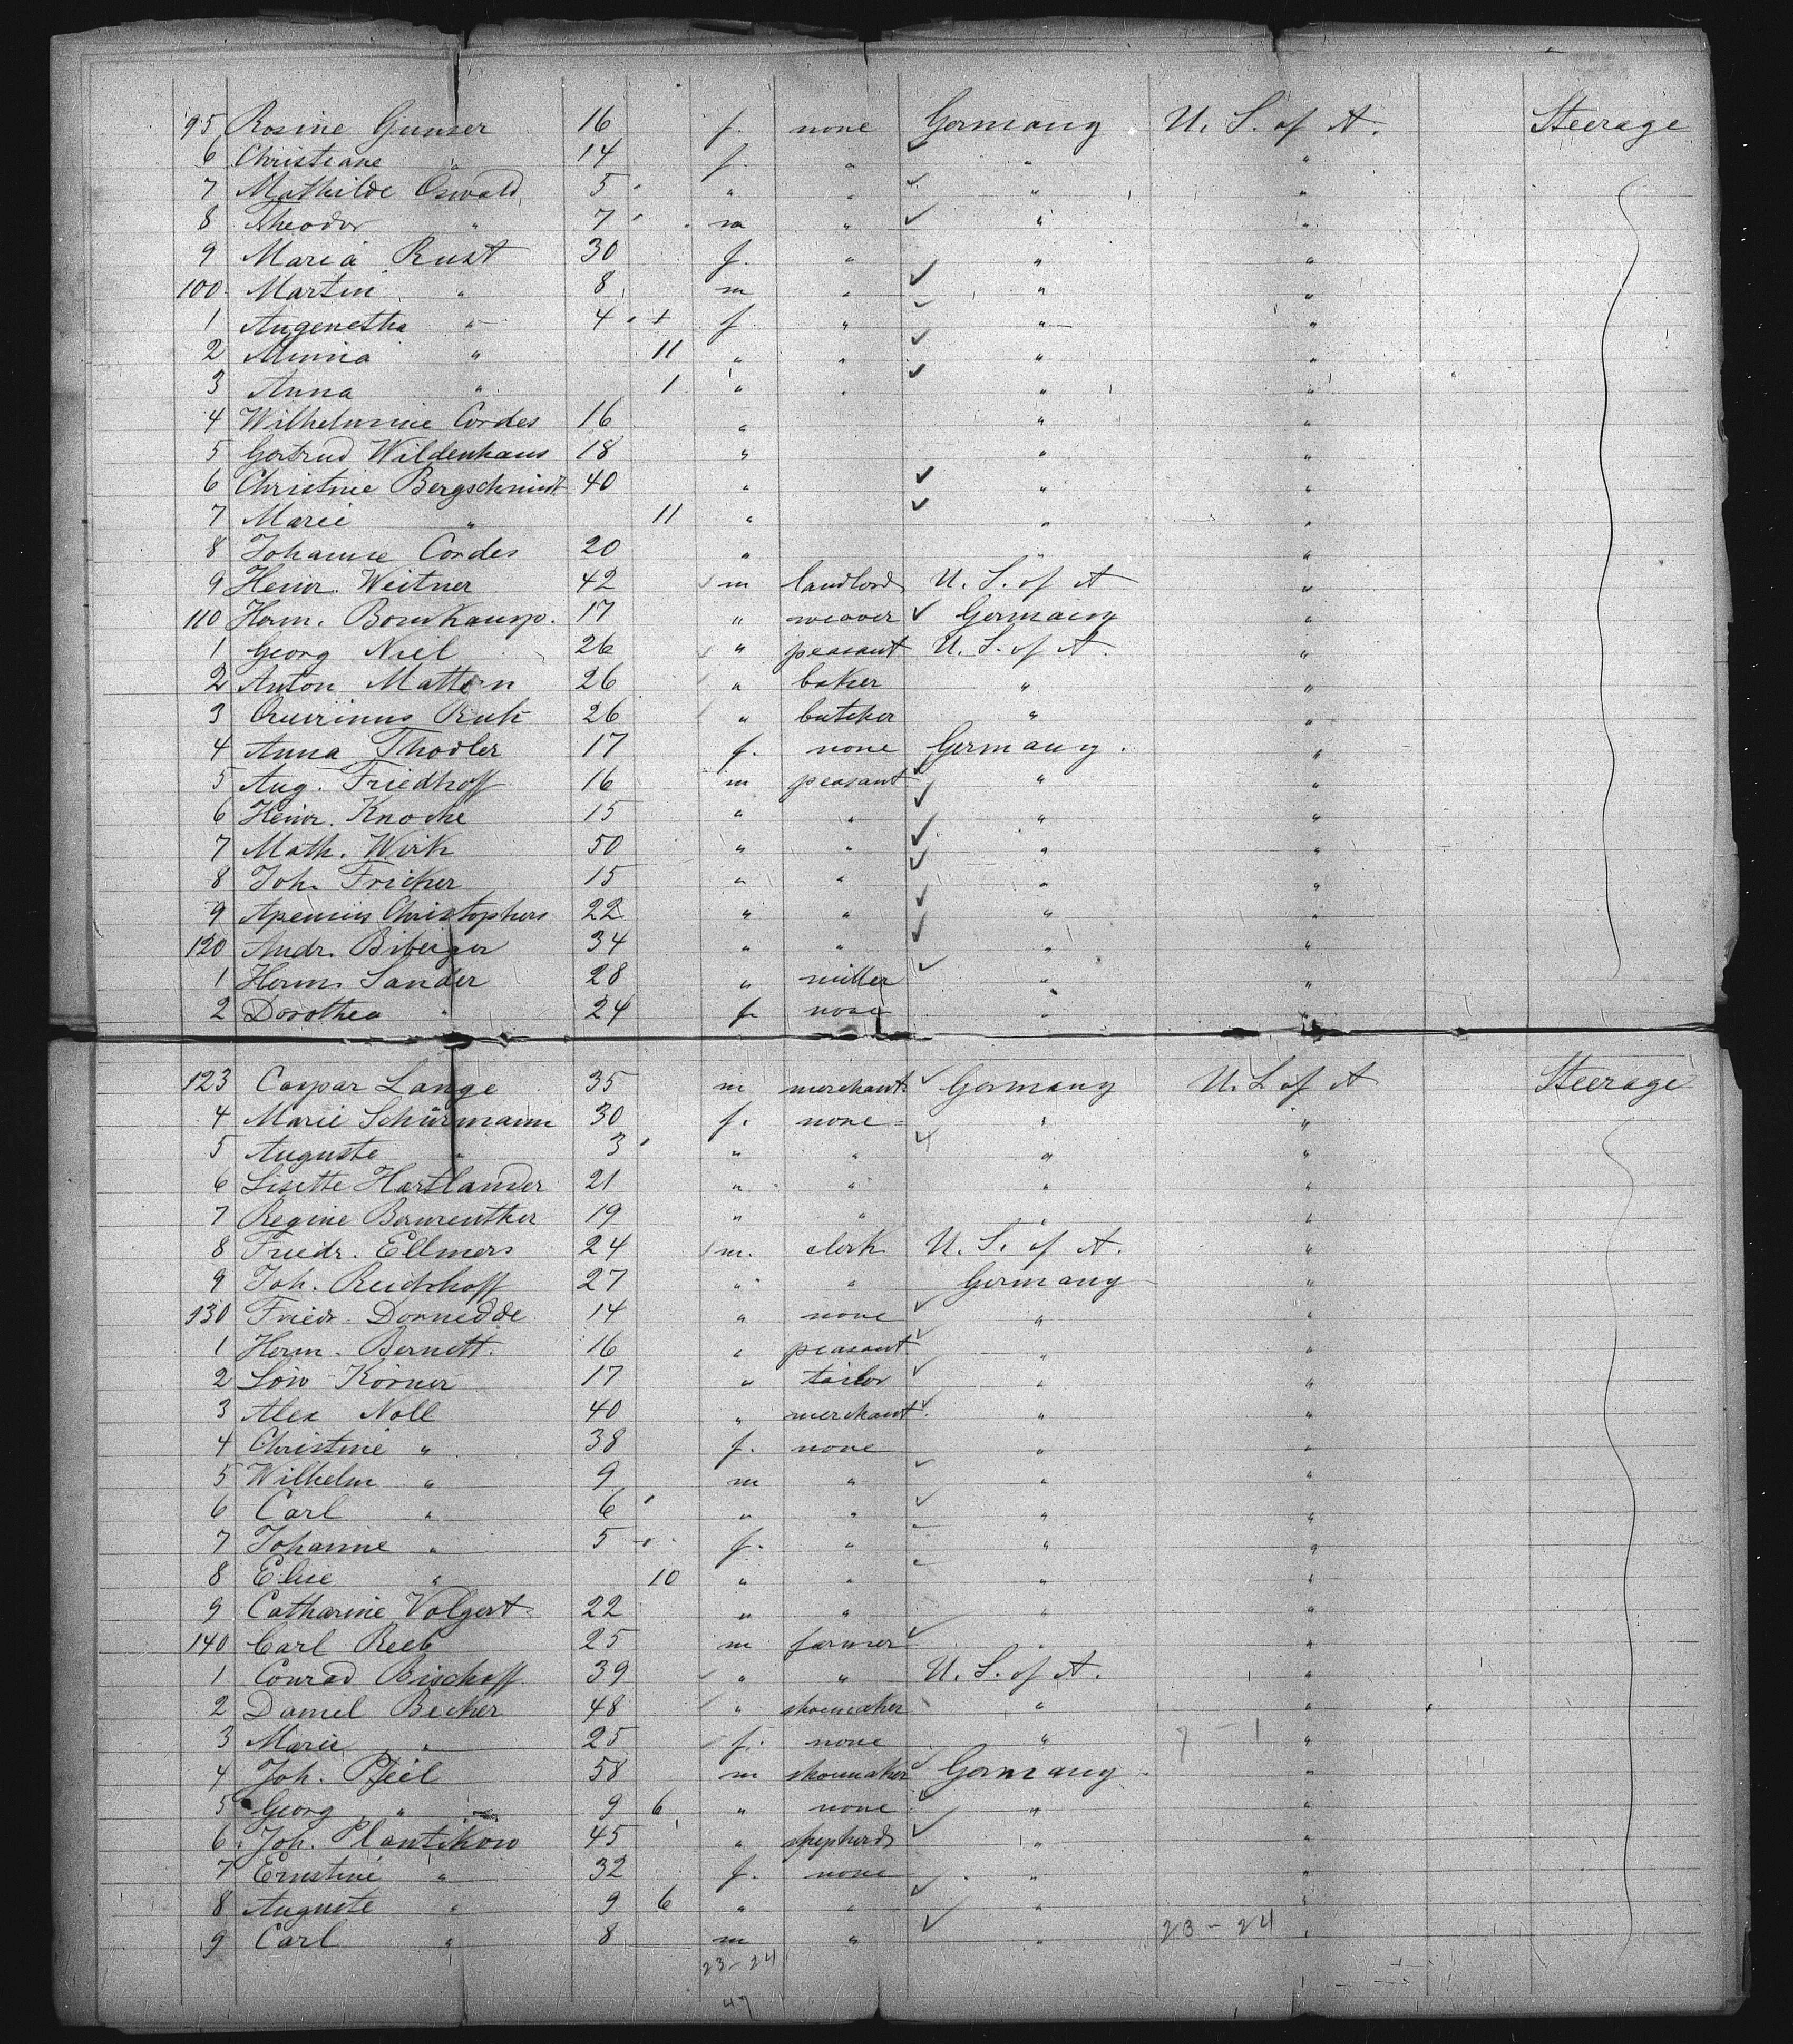 95 Rosine Gunser 16 f. none Germany U. S. of A. Steerage
6 Christiane " 14 f. " " "
7 Mathilde Oswald 5 " " " "
8 Theodor " 7 m " " "
9 Maria Rust 30 f. " " "
100 Martin " 8 m " " "
1 Augenetha " 4 f. " " "
2 Minna " 11 " " " "
3 Anna " 1 " " " "
4 Wilhelmine Cordes 16 " " "
5 Gertrud Wildenhaus 18 " " "
6 Christine Bergschmidt 40 " " "
7 Marie " 11 " " "
8 Johanne Cordes 20 " " "
9 Heinr. Weitner 42 m landlord U. S. of A "
110 Herm. Bornkamp. 17 " weaver Germany "
1 Georg Niel 26 " peasant U. S. of A. "
2 Anton Mattern 26 " baker " "
3 Quirinus Ruh 26 " butcher " "
4 Anna Thodler 17 f. none Germany. "
5 Aug. Friedhoff 16 m peasant " "
6 Heinr. Knoche 15 " " " "
7 Math. Wirk 50 " " " "
8 Joh. Fricker 15 " " " "
9 Christophers 22 " " " "
120 Andr. Biberger 34 " " " "
1 Herm. Sander 28 " miller " "
2 Dorothea " 24 f. none " "
123 Caspar Lange 35 m merchant Germany U. S. of A Steerage
4 Marie Schürmann 30 f. none " "
5 Auguste " 3 " " " "
6 Lisette Hartlander 21 " " " "
7 Regine Beurenther 19 " " " "
8 Friedr. Ellmers 24 m. clerk U. S. of A. "
9 Joh. Reidshoff 27 " " Germany "
130 Friedr. Dornedde 14 " none " "
1 Herm. Bernett. 16 " peasant " "
2 Löw Körner 17 " tailor " "
3 Alex Noll 40 " merchant " "
4 Christine " 38 f. none " "
5 Wilhelm " 9 m " " "
6 Carl " 6 " " " "
7 Johanne " 5 f. " " "
8 Elise " 10 " " " "
9 Catharine Volgert 22 " " " "
140 Carl Reeb 25 m farmer " "
1 Conrad Bischoff 39 " " U. S. of A. "
2 Daniel Becker 48 " shoemaker " "
3 Marie " 25 f. none " "
4 Joh. Pfeil 58 m shoemaker Germany "
5 Georg " 9 6 " none " "
6 Joh. Plantikow 45 " shepherd " "
7 Ernstine " 32 f. none " "
8 Auguste " 9 6 " " " "
9 Carl " 8 m " " 23 - 24 "
23 - 24
47